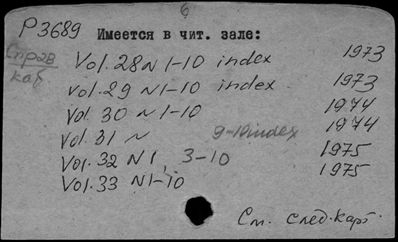 6
P3689 Имеется в чит. зале:
Справ
каб.
Vol. 28 N 1-10 index 1973
Vol. 29 N 1-10 index 1973
Vol. 30 N 1-10 1974
Vol. 31 N 9-10 index 1974
Vol. 32 N 1, 3-10 1975
Vol. 33 N 1-10 1975
См. след. карт.